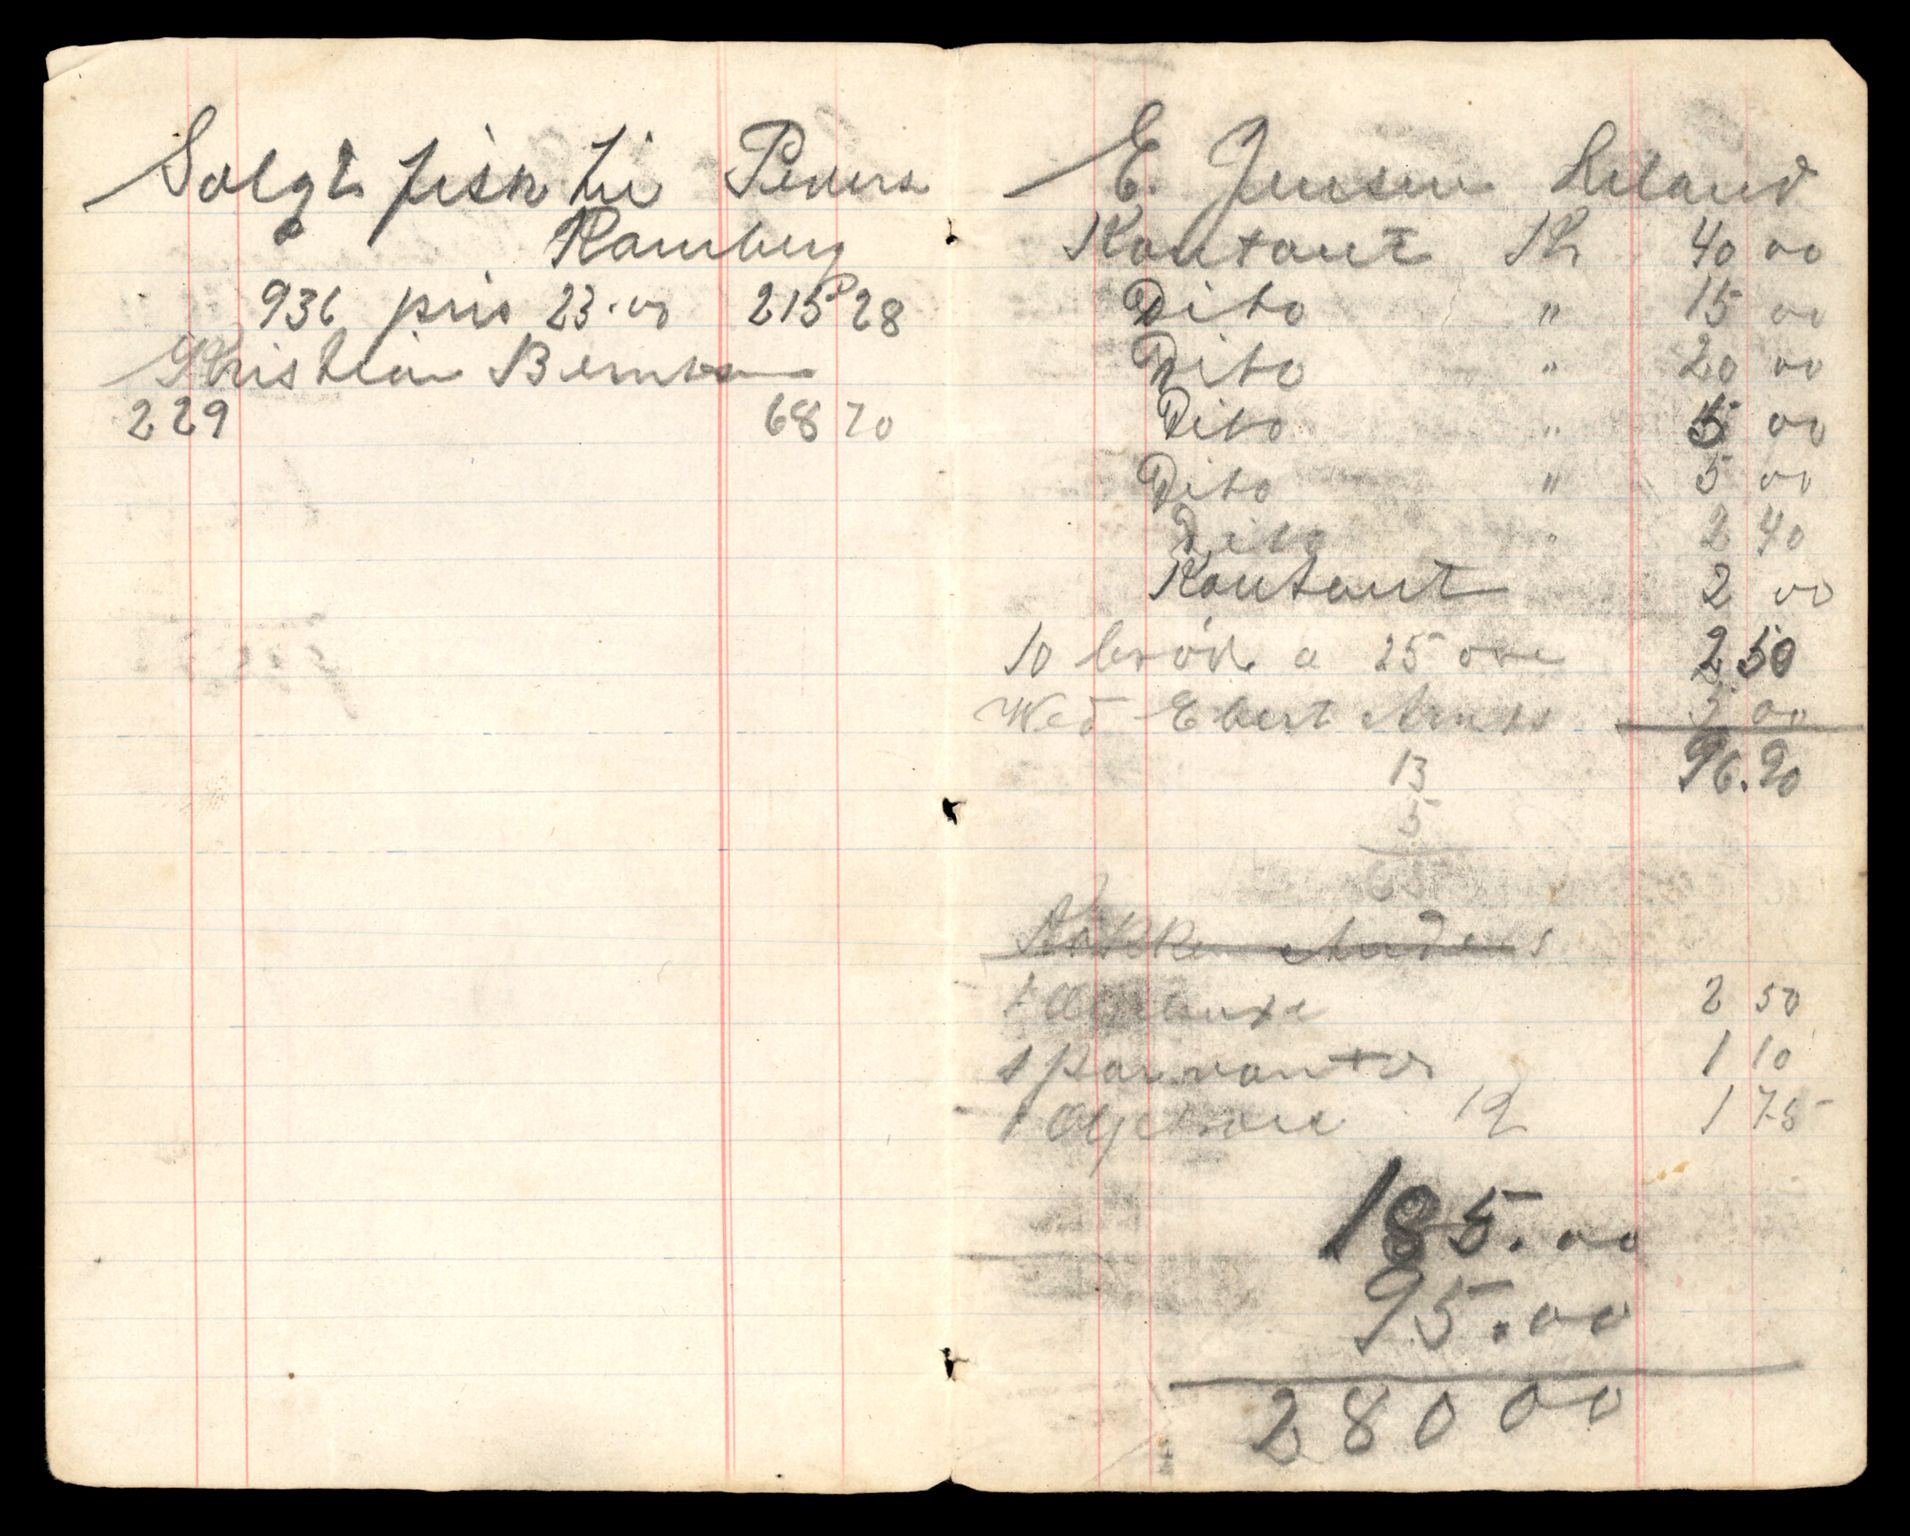 Solgt fisk til Peders
Ramberg
936 pris 23.00 215 28
Kristian Bernsen
229 68 70
E. Jensen Leland
Kontant Kr 40 00
Dito " 15 00
Dito " 20 00
Dito " 5 00
Dito " 5 00
Dito " 2 40
Kontant 2 00
10 brød a 25 øre 2 50
Ved Ebert 5 00
96.90
13
5
65
Anders
1 Oljebuxe 2 50
1 par vanter 1 10
1 1 75
185.00
95.00
280 00